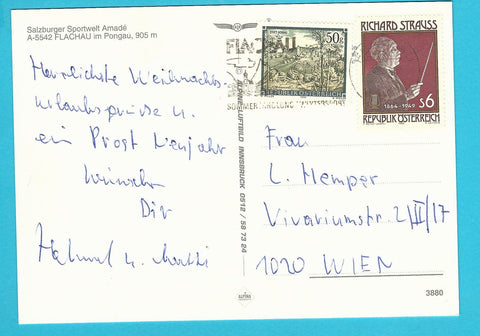 Salzburger Sportwelt Amadé
A-5542 FLACHAU im Pongau, 905 m
Herzlichste Weihnachts-
urlaubsgrüsse u.
ein Prost Neujahr
wünschen
Dir
Helmut u.
FLACHAU
50g
REPUBLIK ÖSTERREICH
RICHARD STRAUSS
1864-1949
S6
REPUBLIK ÖSTERREICH
ALPINE LUFTBILD INNSBRUCK 0512 / 58 73 24
Frau
L. Hemper
Vivariumstr. 2/III/17
1020 WIEN
ALPINE
3880